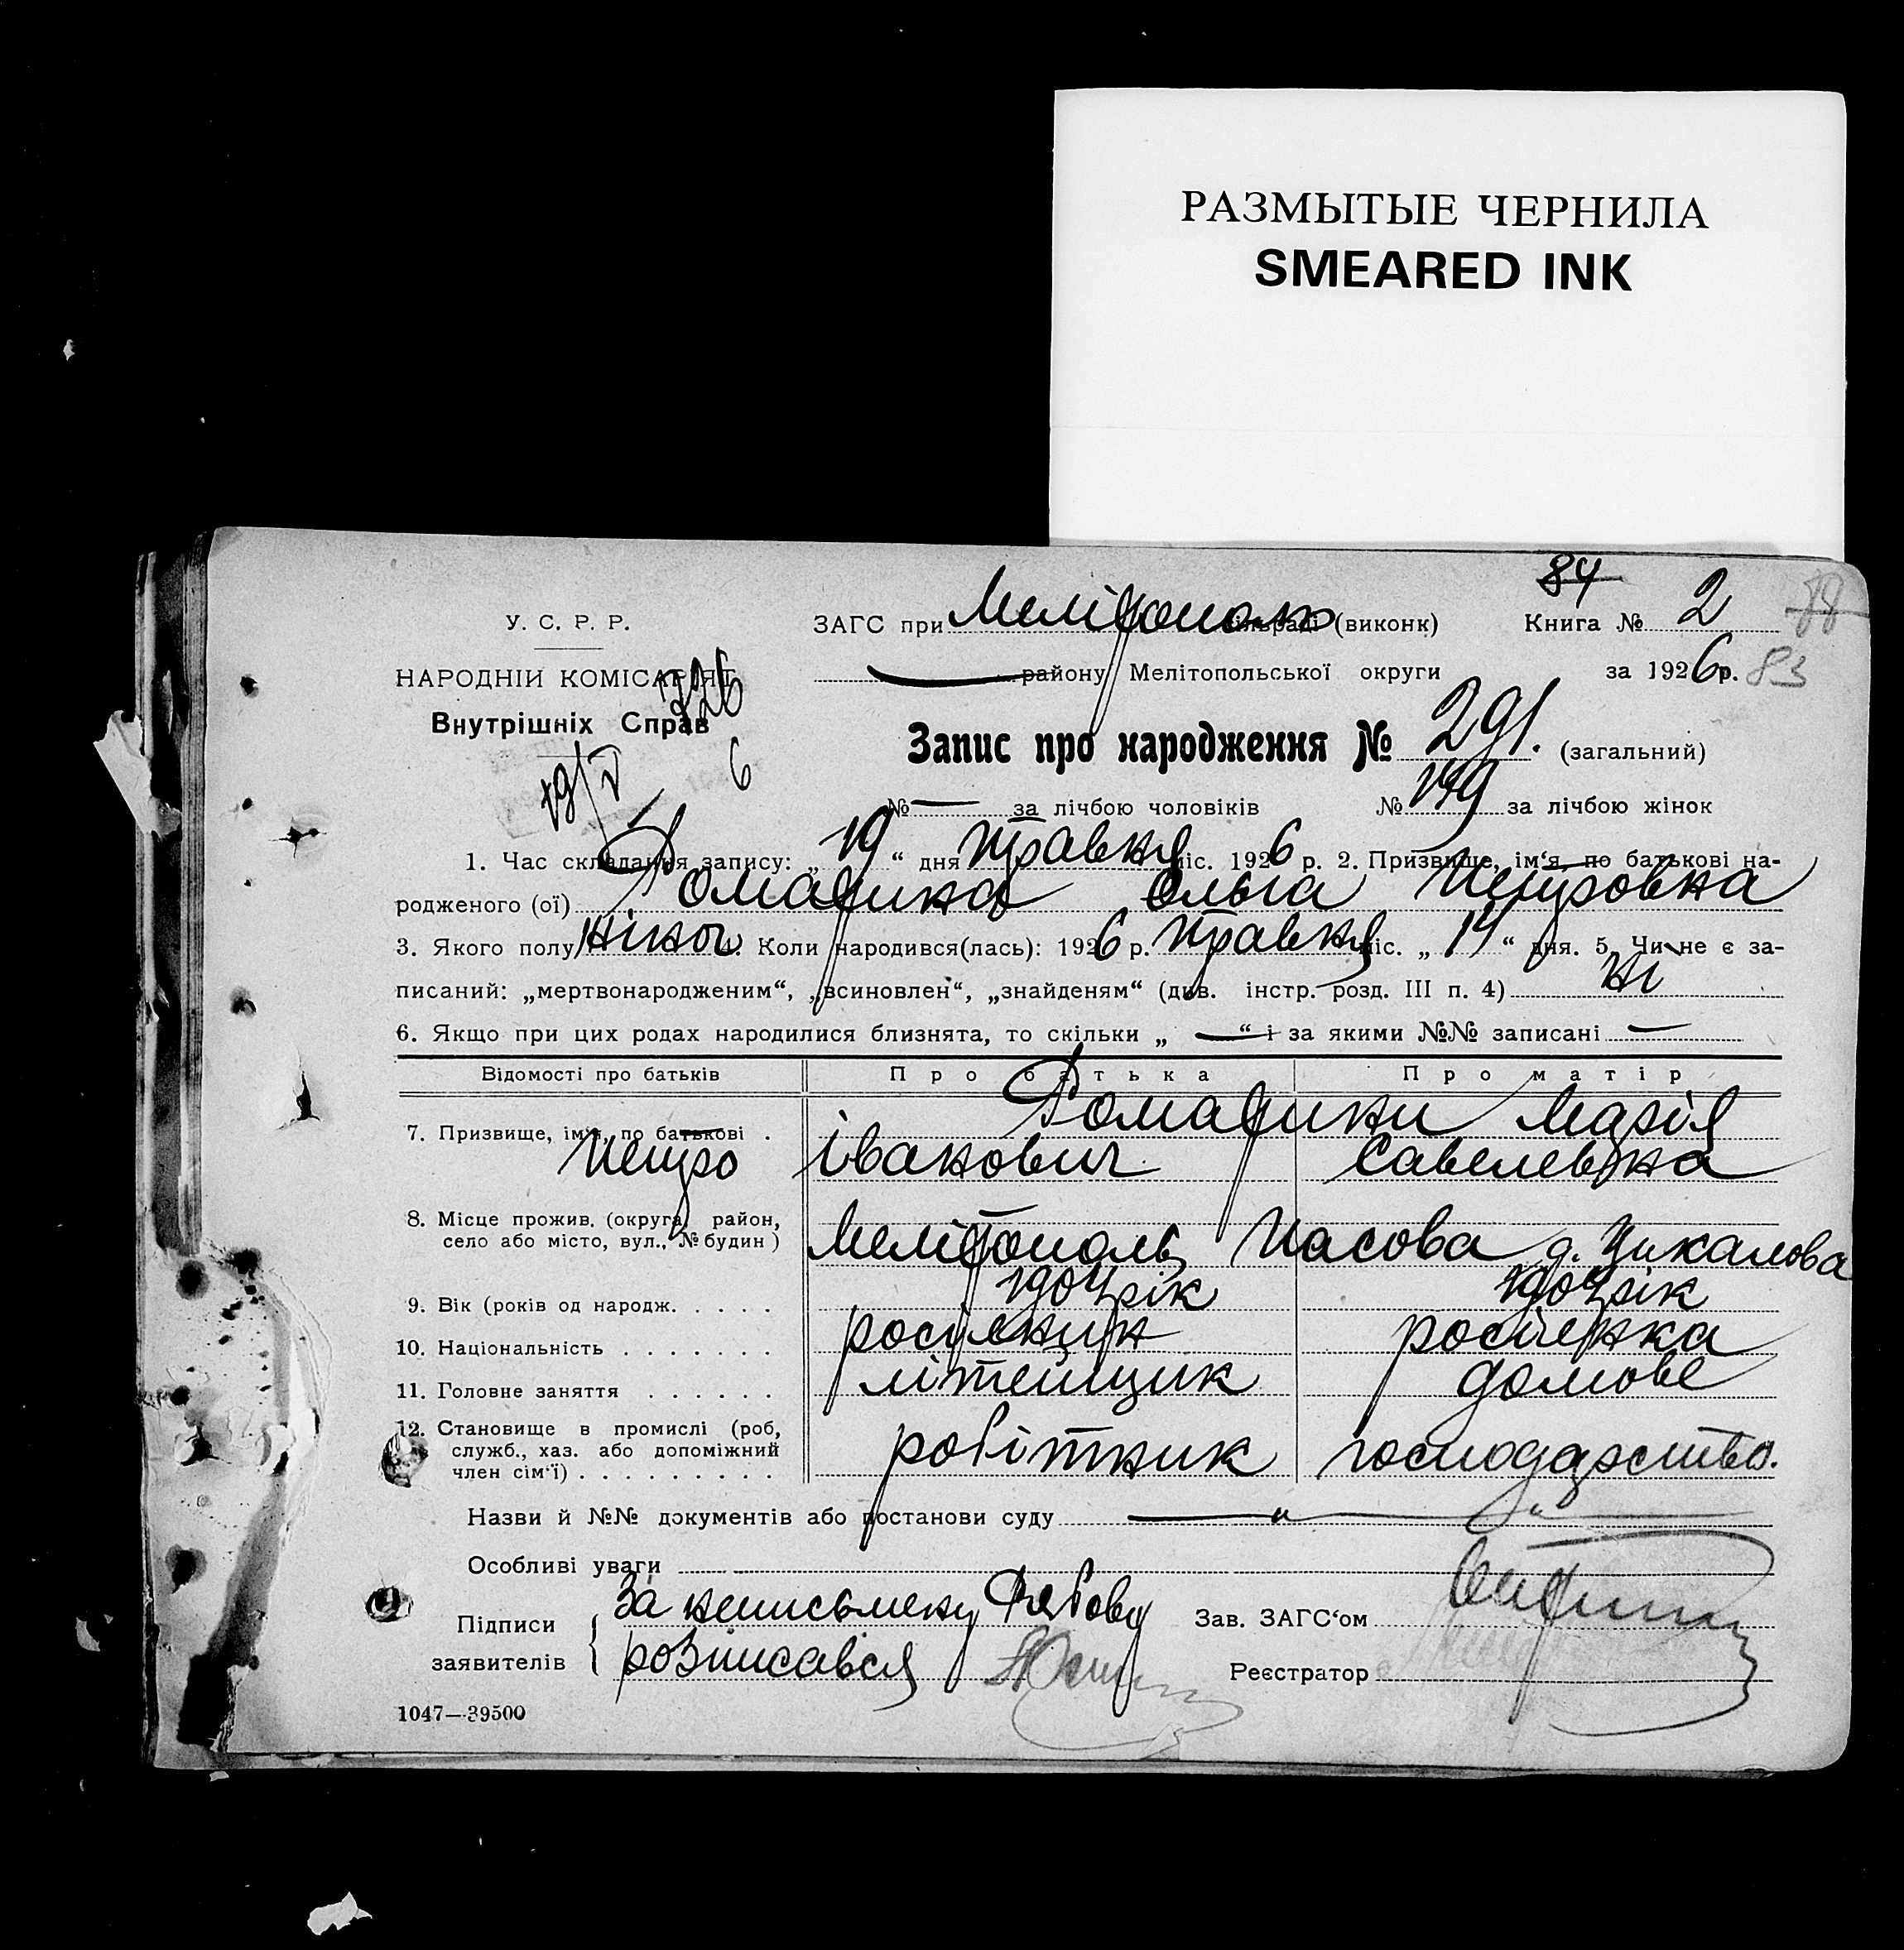 РАЗМЫТЫЕ ЧЕРНИЛА
SMEARED INK
84
У. С. Р. Р.
ЗАГС при Мелітополь (виконк) Книга № 2
НАРОДНІЙ КОМІСАРІЯТ
району Мелітопольської округи за 1926 р. 83
Внутрішніх Справ
Запис про народження № 291. (загальний)
19/V 6
№ — за лічбою чоловіків № 149 за лічбою жінок
1. Час складання запису: „ 19 “ дня травня міс. 1926 р. 2. Призвище, ім‘я, по батькові на-
родженого (ої) Ромадина Ольга Петровна
3. Якого полу жіноч. 4. Коли народився(лась): 1926 р. травня міс. „ 14 “ дня. 5. Чи не є за-
писаний: „мертвонародженим“, „всиновлен“, „знайденям“ (див. інстр. розд. III п. 4) ні
6. Якщо при цих родах народилися близнята, то скільки „ — “ і за якими №№ записані —
Відомості про батьків Про батька Про матір
Ромадини Марія
7. Призвище, ім‘я, по батькові .
Петро Іванович Савелевна
8. Місце прожив. (округа, район,
село або місто, вул., № будин)
Мелітополь д. Цикалова
9. Вік (років од народж. . . . . рік рік
10. Національність . . . . . . . росіянин росіянка
11. Головне заняття . . . . . . літейщик домове
12. Становище в промислі (роб,
служб., хаз. або допоміжний
член сім‘ї) . . . . . . . . . робітник господарство.
Назви й №№ документів або постанови суду — „ —
Особливі уваги
Підписи За неписьмену
Зав. ЗАГС‘ом
заявителів розписався
Реєстратор
1047—39500